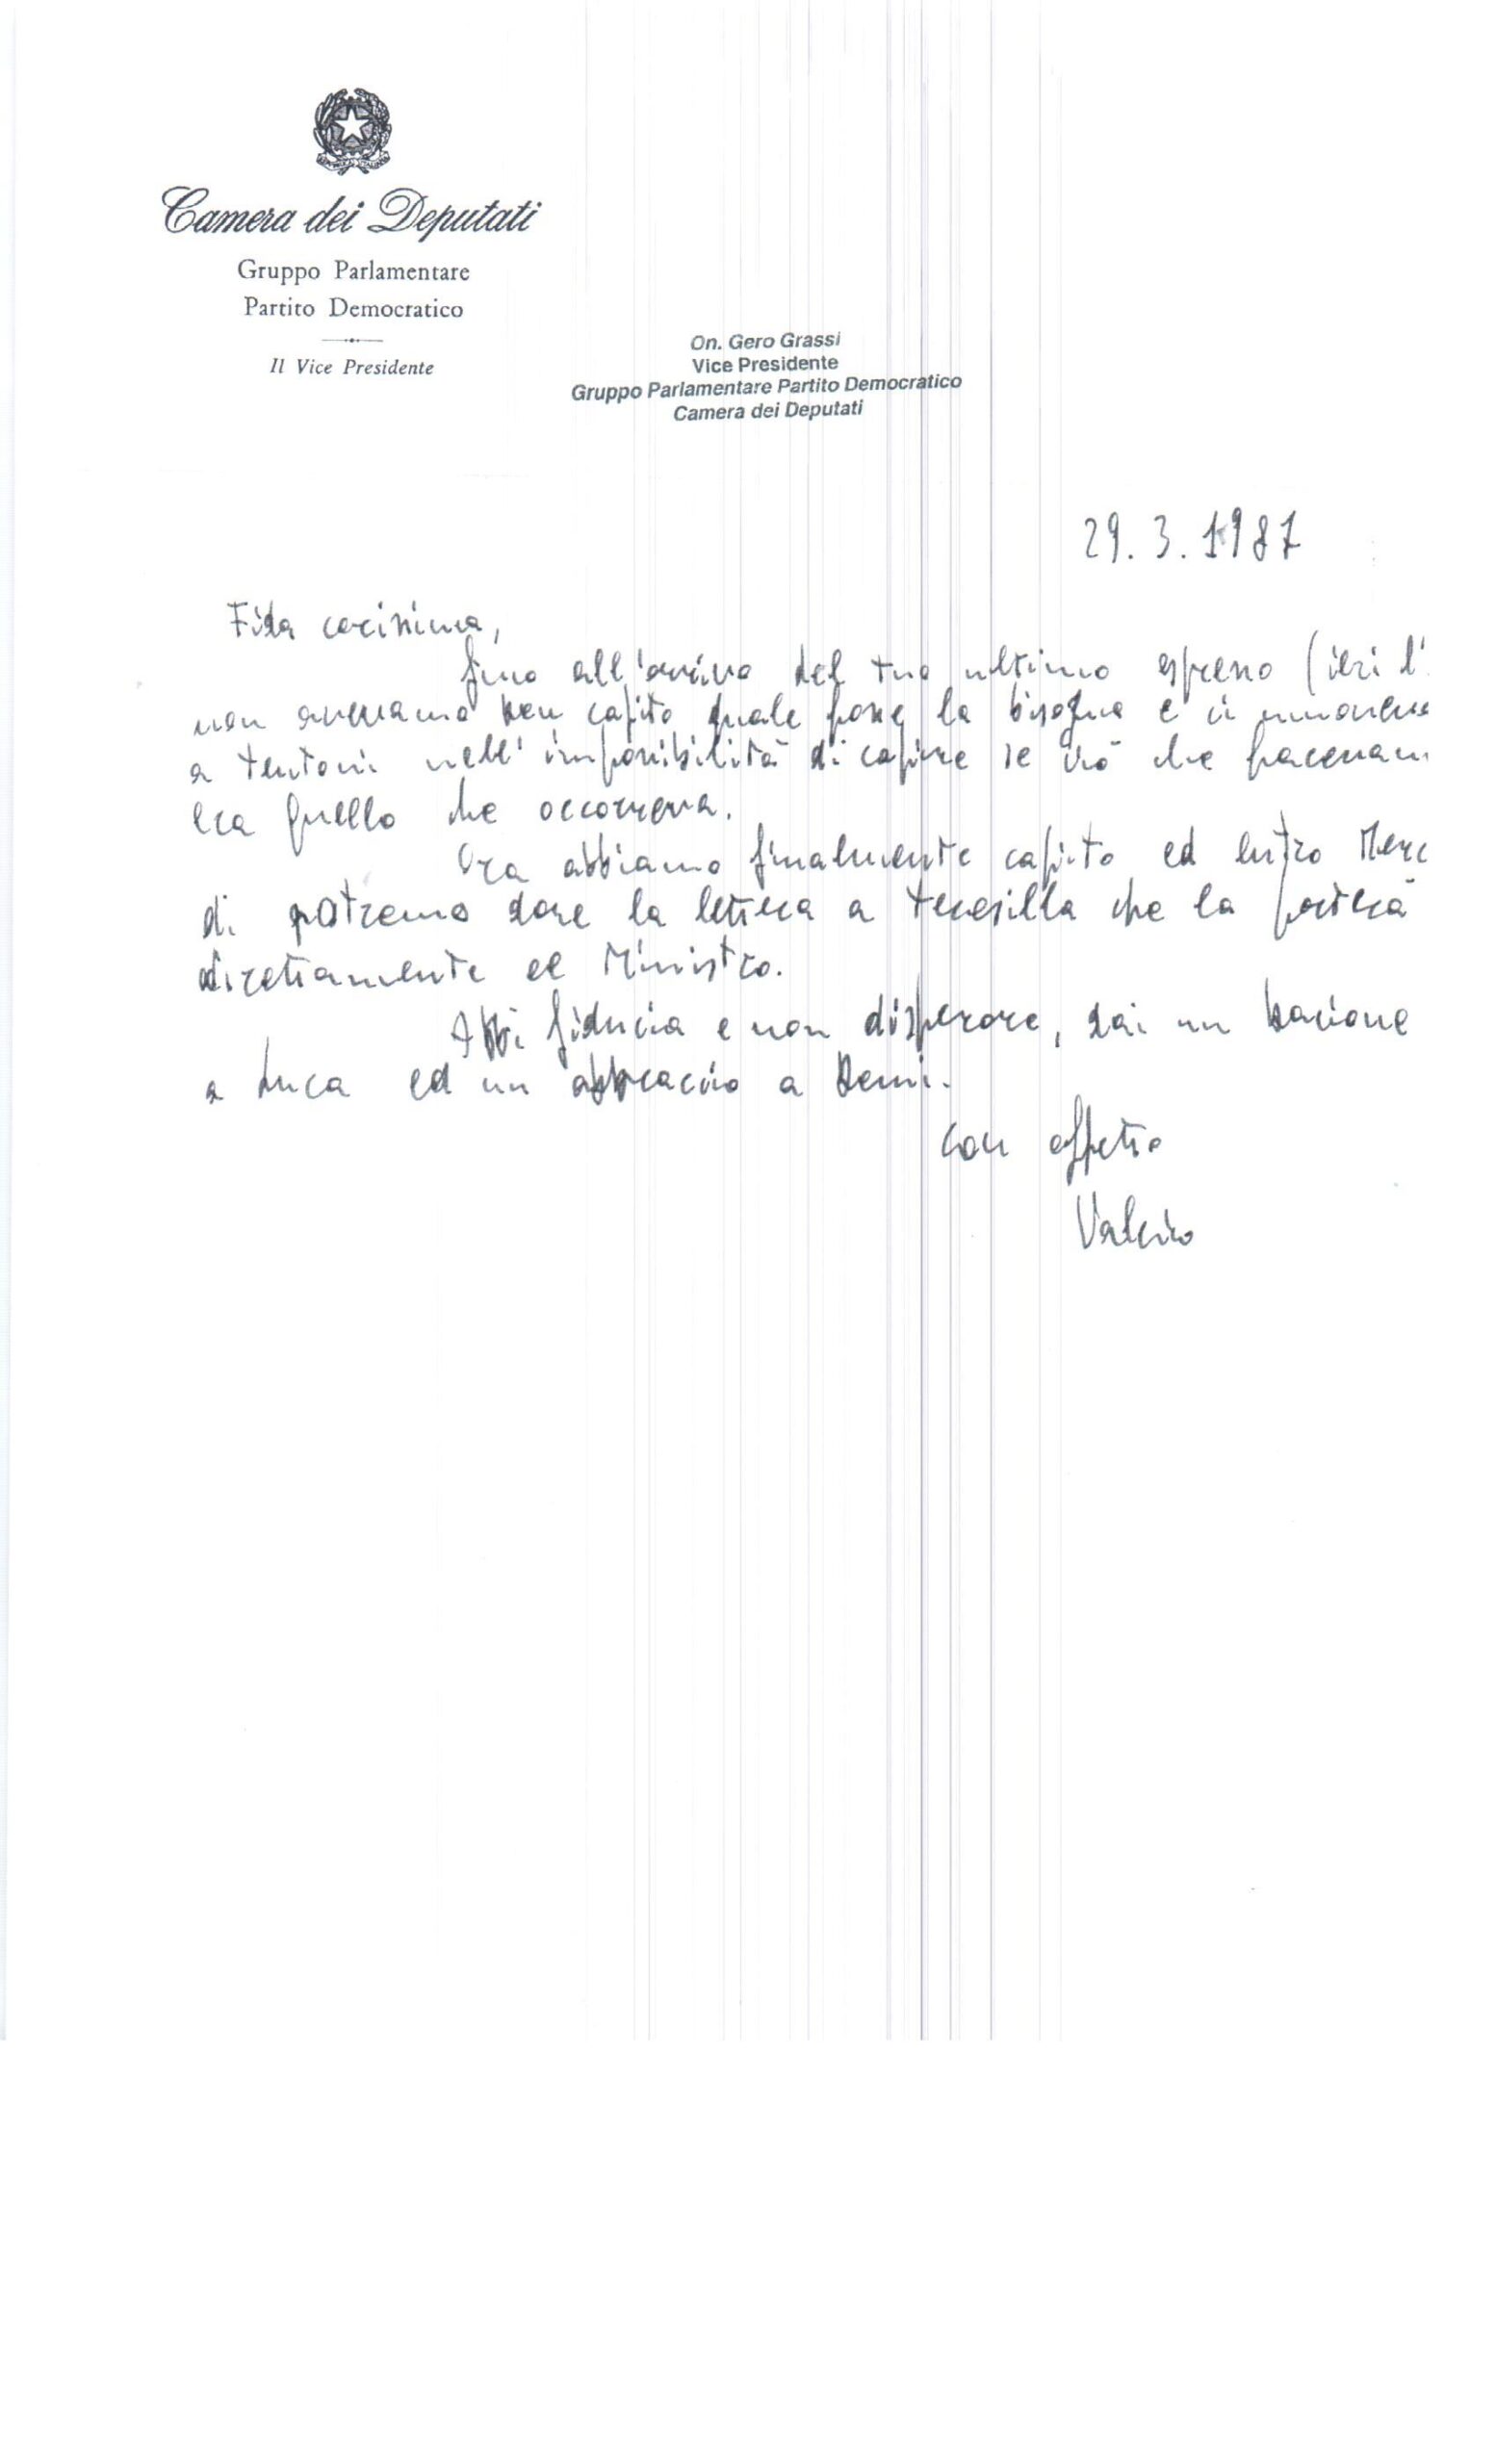 Camera dei Deputati
Gruppo Parlamentare
Partito Democratico
Il Vice Presidente
On. Gero Grassi
Vice Presidente
Gruppo Parlamentare Partito Democratico
Camera dei Deputati
29.3.1987
Fida carissima,
fino all'arrivo del tuo ultimo espresso (ieri l'
non avevamo ben capito quale fosse la bisogna e ci
a tentoni nell'impossibilità di capire se ciò che facevam
era quello che occorreva.
Ora abbiamo finalmente capito ed entro Merc
di potremo dare la lettera a Teresilla che la porterà
direttamente al Ministro.
Abbi fiducia e non disperare, dai un bacione
a Luca ed un abbraccio a Remi.
con affetto
Valerio